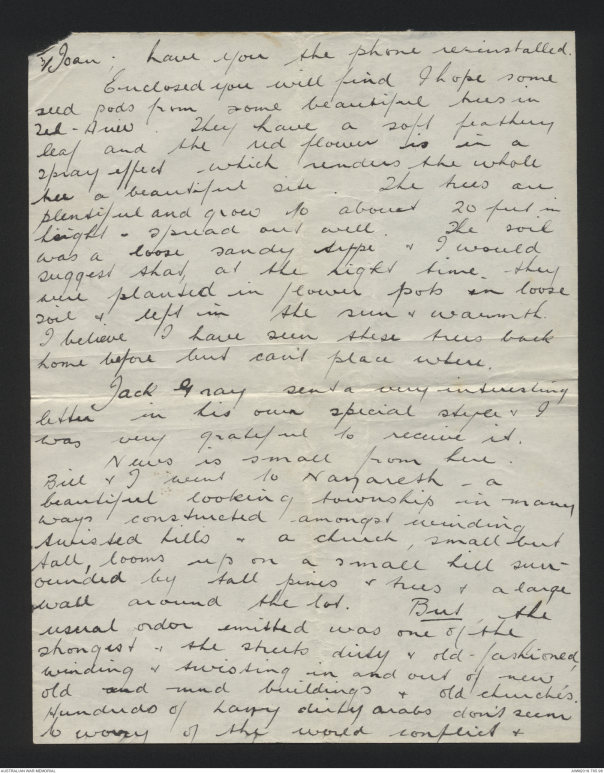 Joan. have you the phone re-installed.
Enclosed you will find I hope some
seed pods from some beautiful trees in
Tel-Aviv. They have a soft feathery
leaf and the red flower is in a
spray effect which renders the whole
tree a beautiful site. The trees are
plentiful and grow to about 20 feet in
height - spread out well. The soil
was a loose sandy type & I would
suggest that, at the right time, they
were planted in flower pots in loose
soil & left in the sun & warmth.
I believe I have seen these trees back
home before but can't place where.
Jack Gray sent a very interesting
letter in his own special style & I
was very grateful to receive it.
News is small from here.
Bill & I went to Nazareth - a
beautiful looking township in many
ways constructed amongst winding
twisted hills & a church, small but
tall, looms up on a small hill surr-
ounded by tall pines & trees & a large
wall around the lot. But the
usual odor emitted was one of the
strongest & the streets dirty & old-fashioned,
winding & twisting in and out of new
old and mud buildings & old churches.
Hundreds of dirty arabs don't seem
to worry of the world conflict &
AUSTRALIAN WAR MEMORIAL